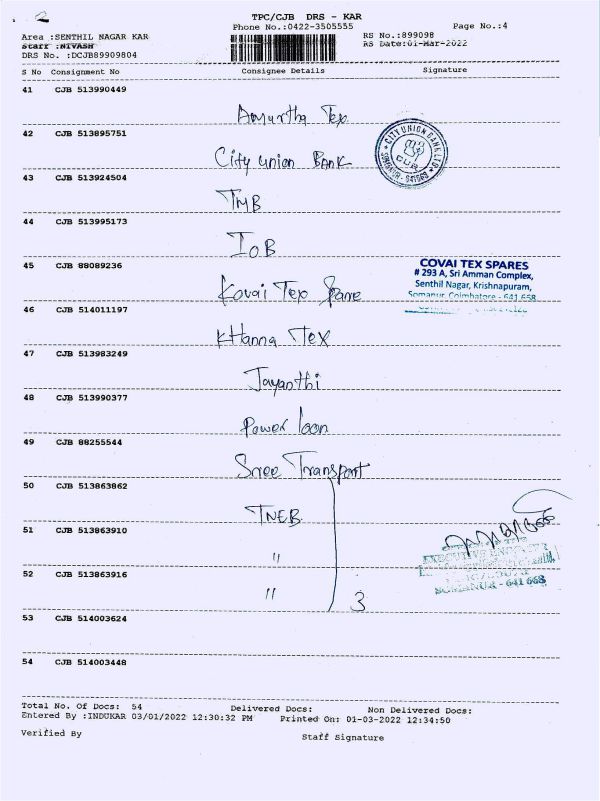 2
TPC/CJB DRS - KAR
Phone No.:0422-3505555 Page No.:4
Area :SENTHIL NAGAR KAR RS No.:899098
Staff :NIVASH RS Date:01-Mar-2022
DRS No. :DCJB89909804
S No Consignment No Consignee Details Signature
41 CJB 513990449
Amurtha Tex
42 CJB 513895751
City union Bank
CITY UNION BANK LTD
CUB
SOMANUR - 641668
43 CJB 513924504
TMB
44 CJB 513995173
IOB
45 CJB 88089236
Kovai Tex Spare
COVAI TEX SPARES
# 293 A, Sri Amman Complex,
Senthil Nagar, Krishnapuram,
Somanur, Coimbatore - 641 668
46 CJB 514011197
KHanna Tex
47 CJB 513983249
Jayanthi
48 CJB 513990377
Power loon
49 CJB 88255544
Sree Transport
50 CJB 513863862
TNEB
51 CJB 513863910
"
EXECUTIVE ENGINEER
52 CJB 513863916
"
SOMANUR - 641 668
3
53 CJB 514003624
54 CJB 514003448
Total No. Of Docs: 54 Delivered Docs: Non Delivered Docs:
Entered By :INDUKAR 03/01/2022 12:30:32 PM Printed On: 01-03-2022 12:34:50
Verified By Staff Signature